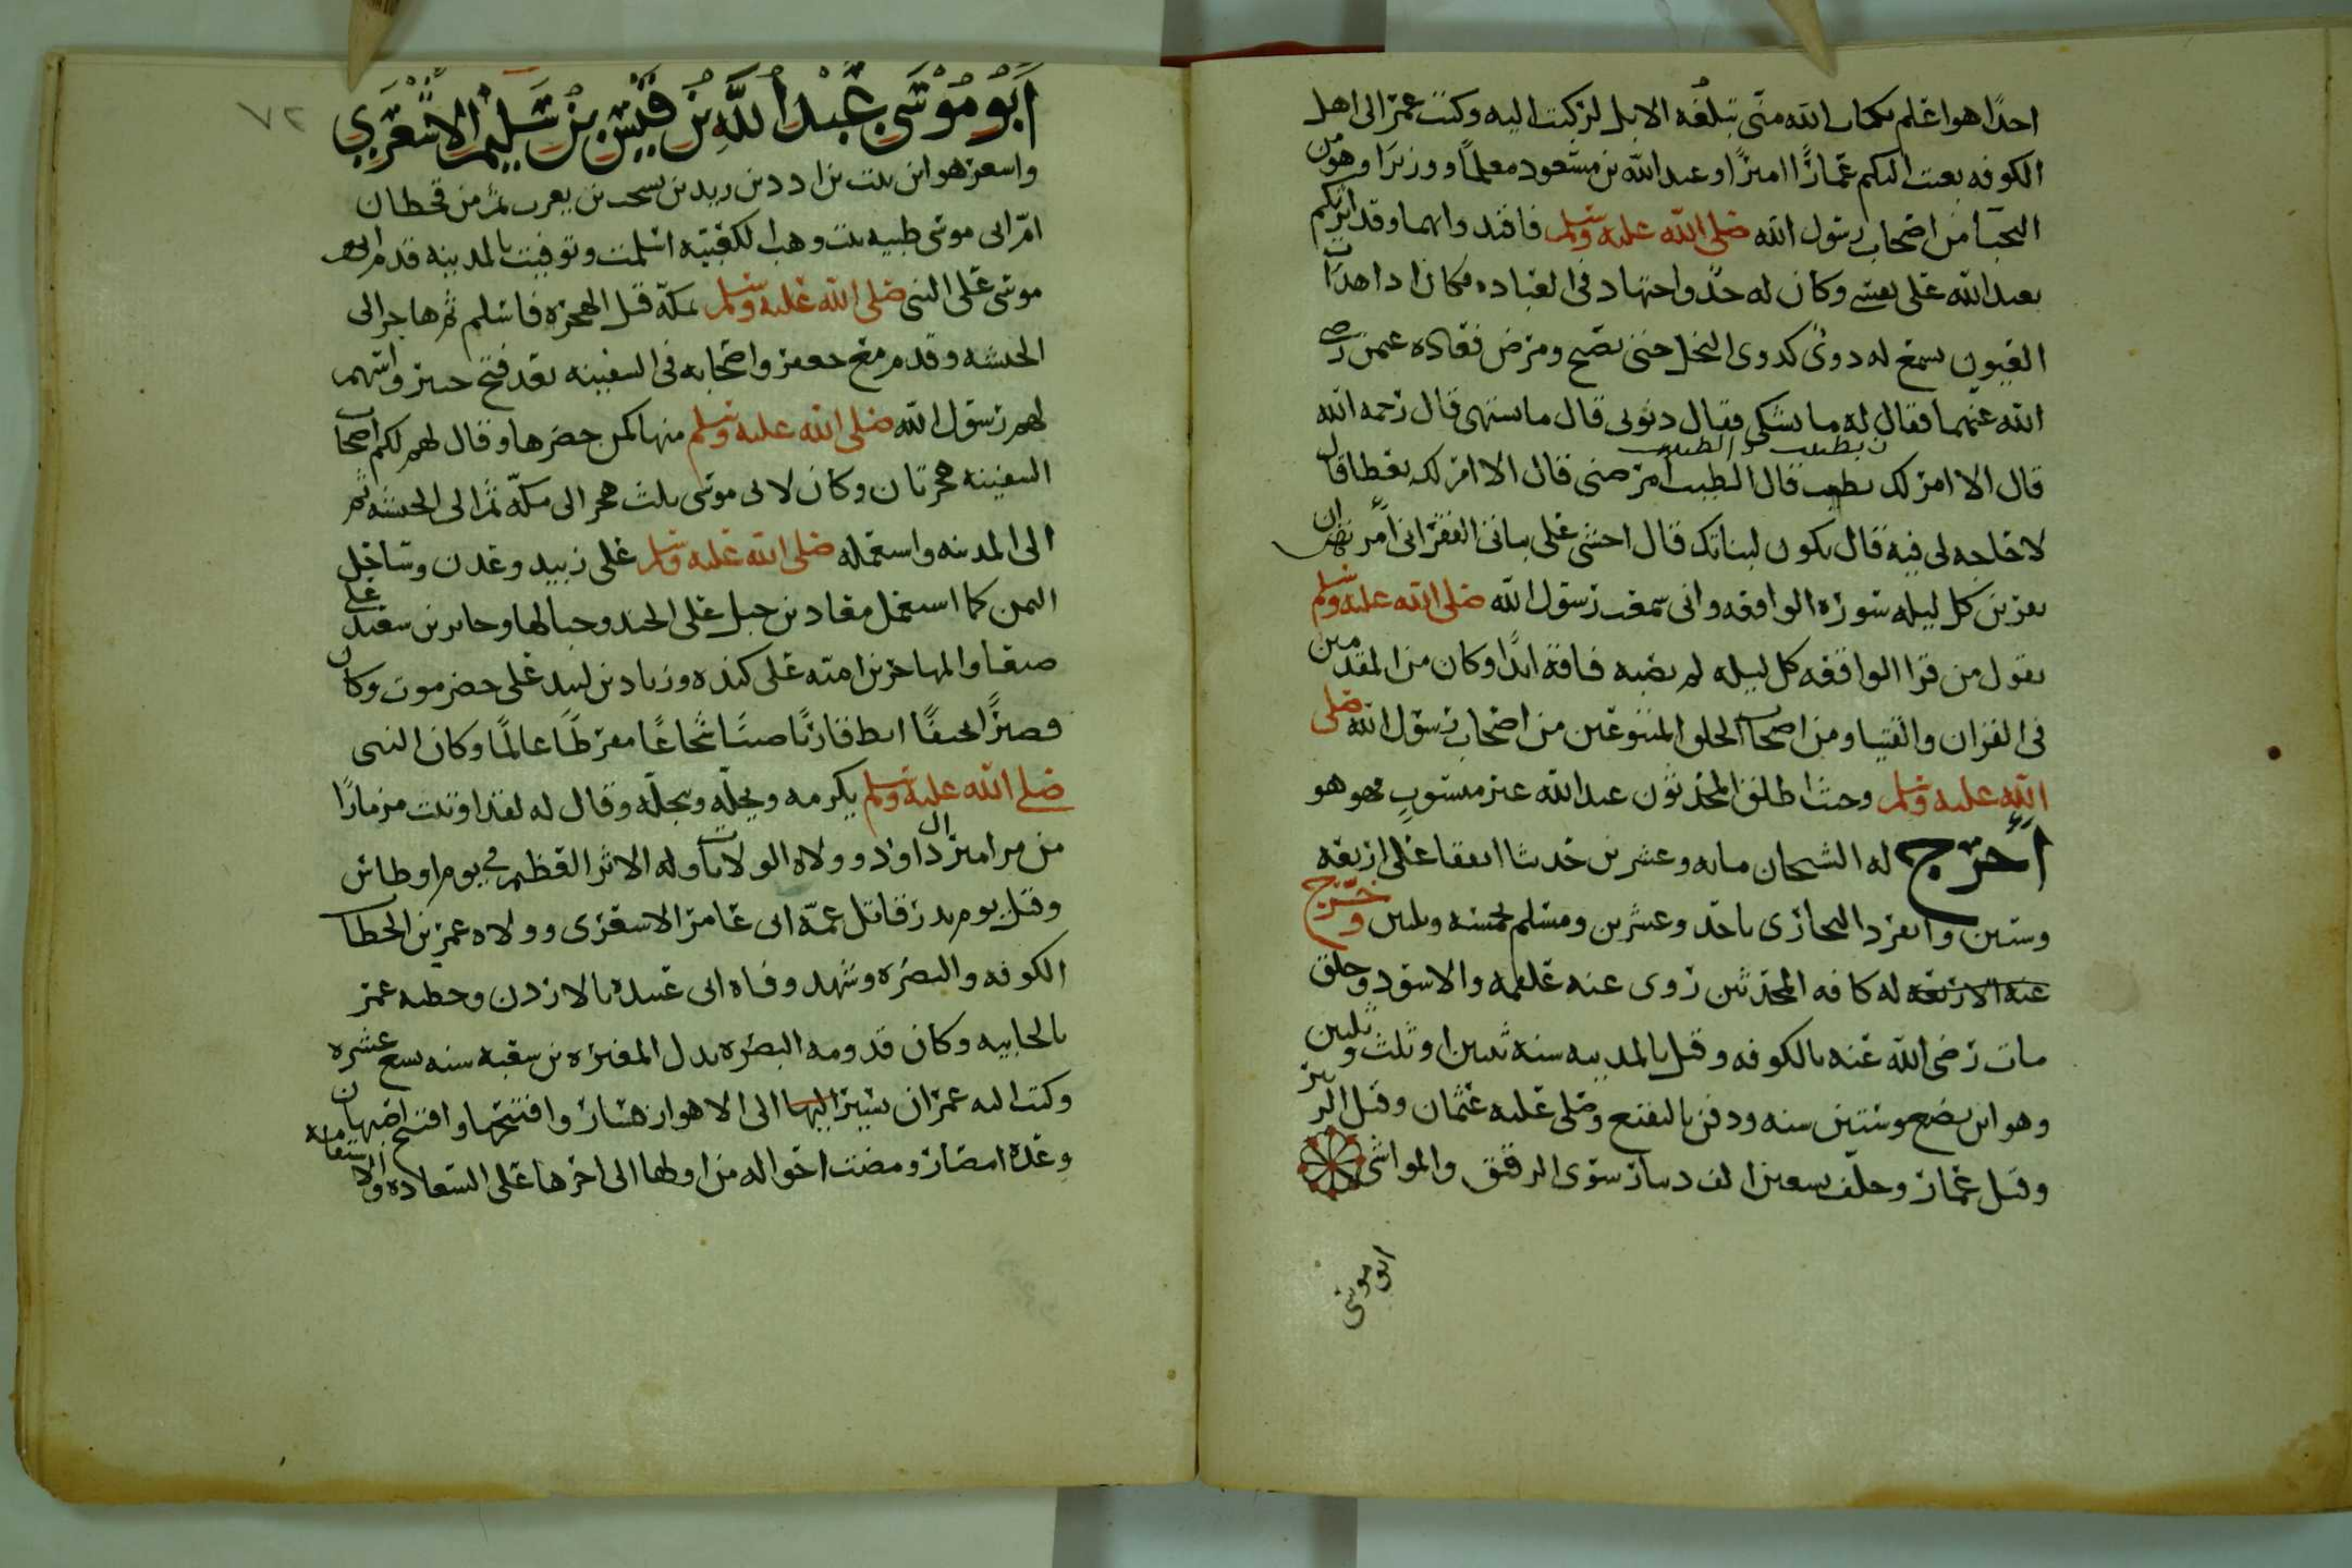 احدًا هو اعلم بكتاب الله منّي تبلغه الابل لركبت اليه وكتب عمر الى اهل
الكوفه بعثت اليكم عمّارًا اميرًا وعبدالله بن مسعود معلمًا ووزيرًا وهو من
النجبآ من اصحاب رسول الله صلى الله عليه وسلم فاقتدوا بهما وقد اثرتكم
بعبدالله على نفسي وكان له حدّ واجتهاد في العباده فكان اذا هدات
العيون يسمع له دويّ كدوي النحل حتى يصبح ومرض فعاده عثمن رضي
الله عنهما فقال له ما تشتكي فقال ذنوبي قال ما تشتهي قال رحمه الله
قال الا امر لك بطبيب قال الطبيب امرضني قال الا امر لك بعطا قال
لا حاجه لي فيه قال يكون لبناتك قال اخشى على بناتي الفقر اني امرتهن ان
يقرين كل ليله سوره الواقعه واني سمعت رسول الله صلى الله عليه وسلم
يقول من قرا الواقعه كل ليله لم تصبه فاقة ابدًا وكان من المقدمين
في القران والفتيا ومن اصحاب الحلق المتبوعين من اصحاب رسول الله صلى
الله عليه وسلم وحيث اطلق المحدثون عبدالله غير منسوب فهو هو
اخرج له الشيخان مايه وعشرين حديثا اتفقا على اربعه
وستين وانفرد البخاري باحد وعشرين ومسلم بخمسه وثلثين وخرج
عنه الاربعه له كافه المحدثين روى عنه علقمه والاسود وخلق
مات رضي الله عنه بالكوفه وقيل بالمدينه سنه ثنتين او ثلث وثلثين
وهو ابن بضع وستين سنه ودفن بالبقيع وصلى عليه عثمان وقيل الزبير
وقيل عمّار وخلّف تسعين الف دينار سوى الرقيق والمواشي
ابو موسى
٧٢
ابو موسى عبد الله بن قيس بن سليم الاشعري
واشعر هو ابن نبت بن ادد بن زيد بن يشجب بن يعرب ثم من قحطان
امّ ابي موسى طيبه بنت وهب العكيّه اسلمت وتوفيت بالمدينه قدم ابو
موسى على النبي صلى الله عليه وسلم بمكّه قبل الهجره فاسلم ثم هاجر الى
الحبشه وقدم مع جعفر واصحابه في السفينه بعد فتح خيبر واسهم
لهم رسول الله صلى الله عليه وسلم منها كمن حضرها وقال لهم لكم اصحاب
السفينه هجرتان وكان لابي موسى ثلث هجر الى مكّه ثم الى الحبشه ثم
الى المدينه واستعمله صلى الله عليه وسلم على زبيد وعدن وساحل
اليمن كما استعمل معاذ بن جبل على الجند وجبالها وخالد بن سعيد على
صنعا والمهاجر بن اميّه على كنده وزياد بن لبيد على حضرموت وكان
قصيرًا نحيفًا اثط قاريًا صيتًا شجاعًا مفرطًا عالمًا وكان النبي
صلى الله عليه وسلم يكرمه ويجلّه ويبجّله وقال له لقد اوتيت مزمارًا
من مزامير ال داوود وولاه الولايات وله الاثر العظيم في يوم اوطاس
وقتل يوم بدر قاتل عمّه ابي عامر الاشعري وولاه عمر بن الخطاب
الكوفه والبصره وشهد وفاه ابي عبيده بالاردن وخطبه عمر
بالجابيه وكان قدومه البصره بدل المغيره بن شعبه سنه سبع عشره
وكتب اليه عمر ان يسير اليها الى الاهواز فسار وافتتحها وافتتح اصبهان
وعده امصار ومضت احواله من اولها الى اخرها على السعاده والاستقامه